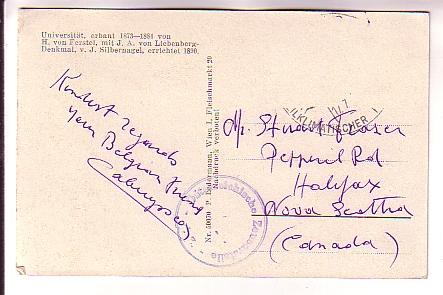 Universität, erbaut 1873—1884 von
H. von Ferstel, mit J. A. von Liebenberg-
Denkmal, v. J. Silbernagel, errichtet 1890.
Kindest regards
Your Belgian
Nr. 50070 P. Ledermann, Wien I Fleischmarkt 20
Nachdruck verboten!
KLIMATISCHER
Österreichische Zensurstelle
Mr. Stuart Fraser
Pepperel Rd
Halifax
Nova Scotia
(Canada)